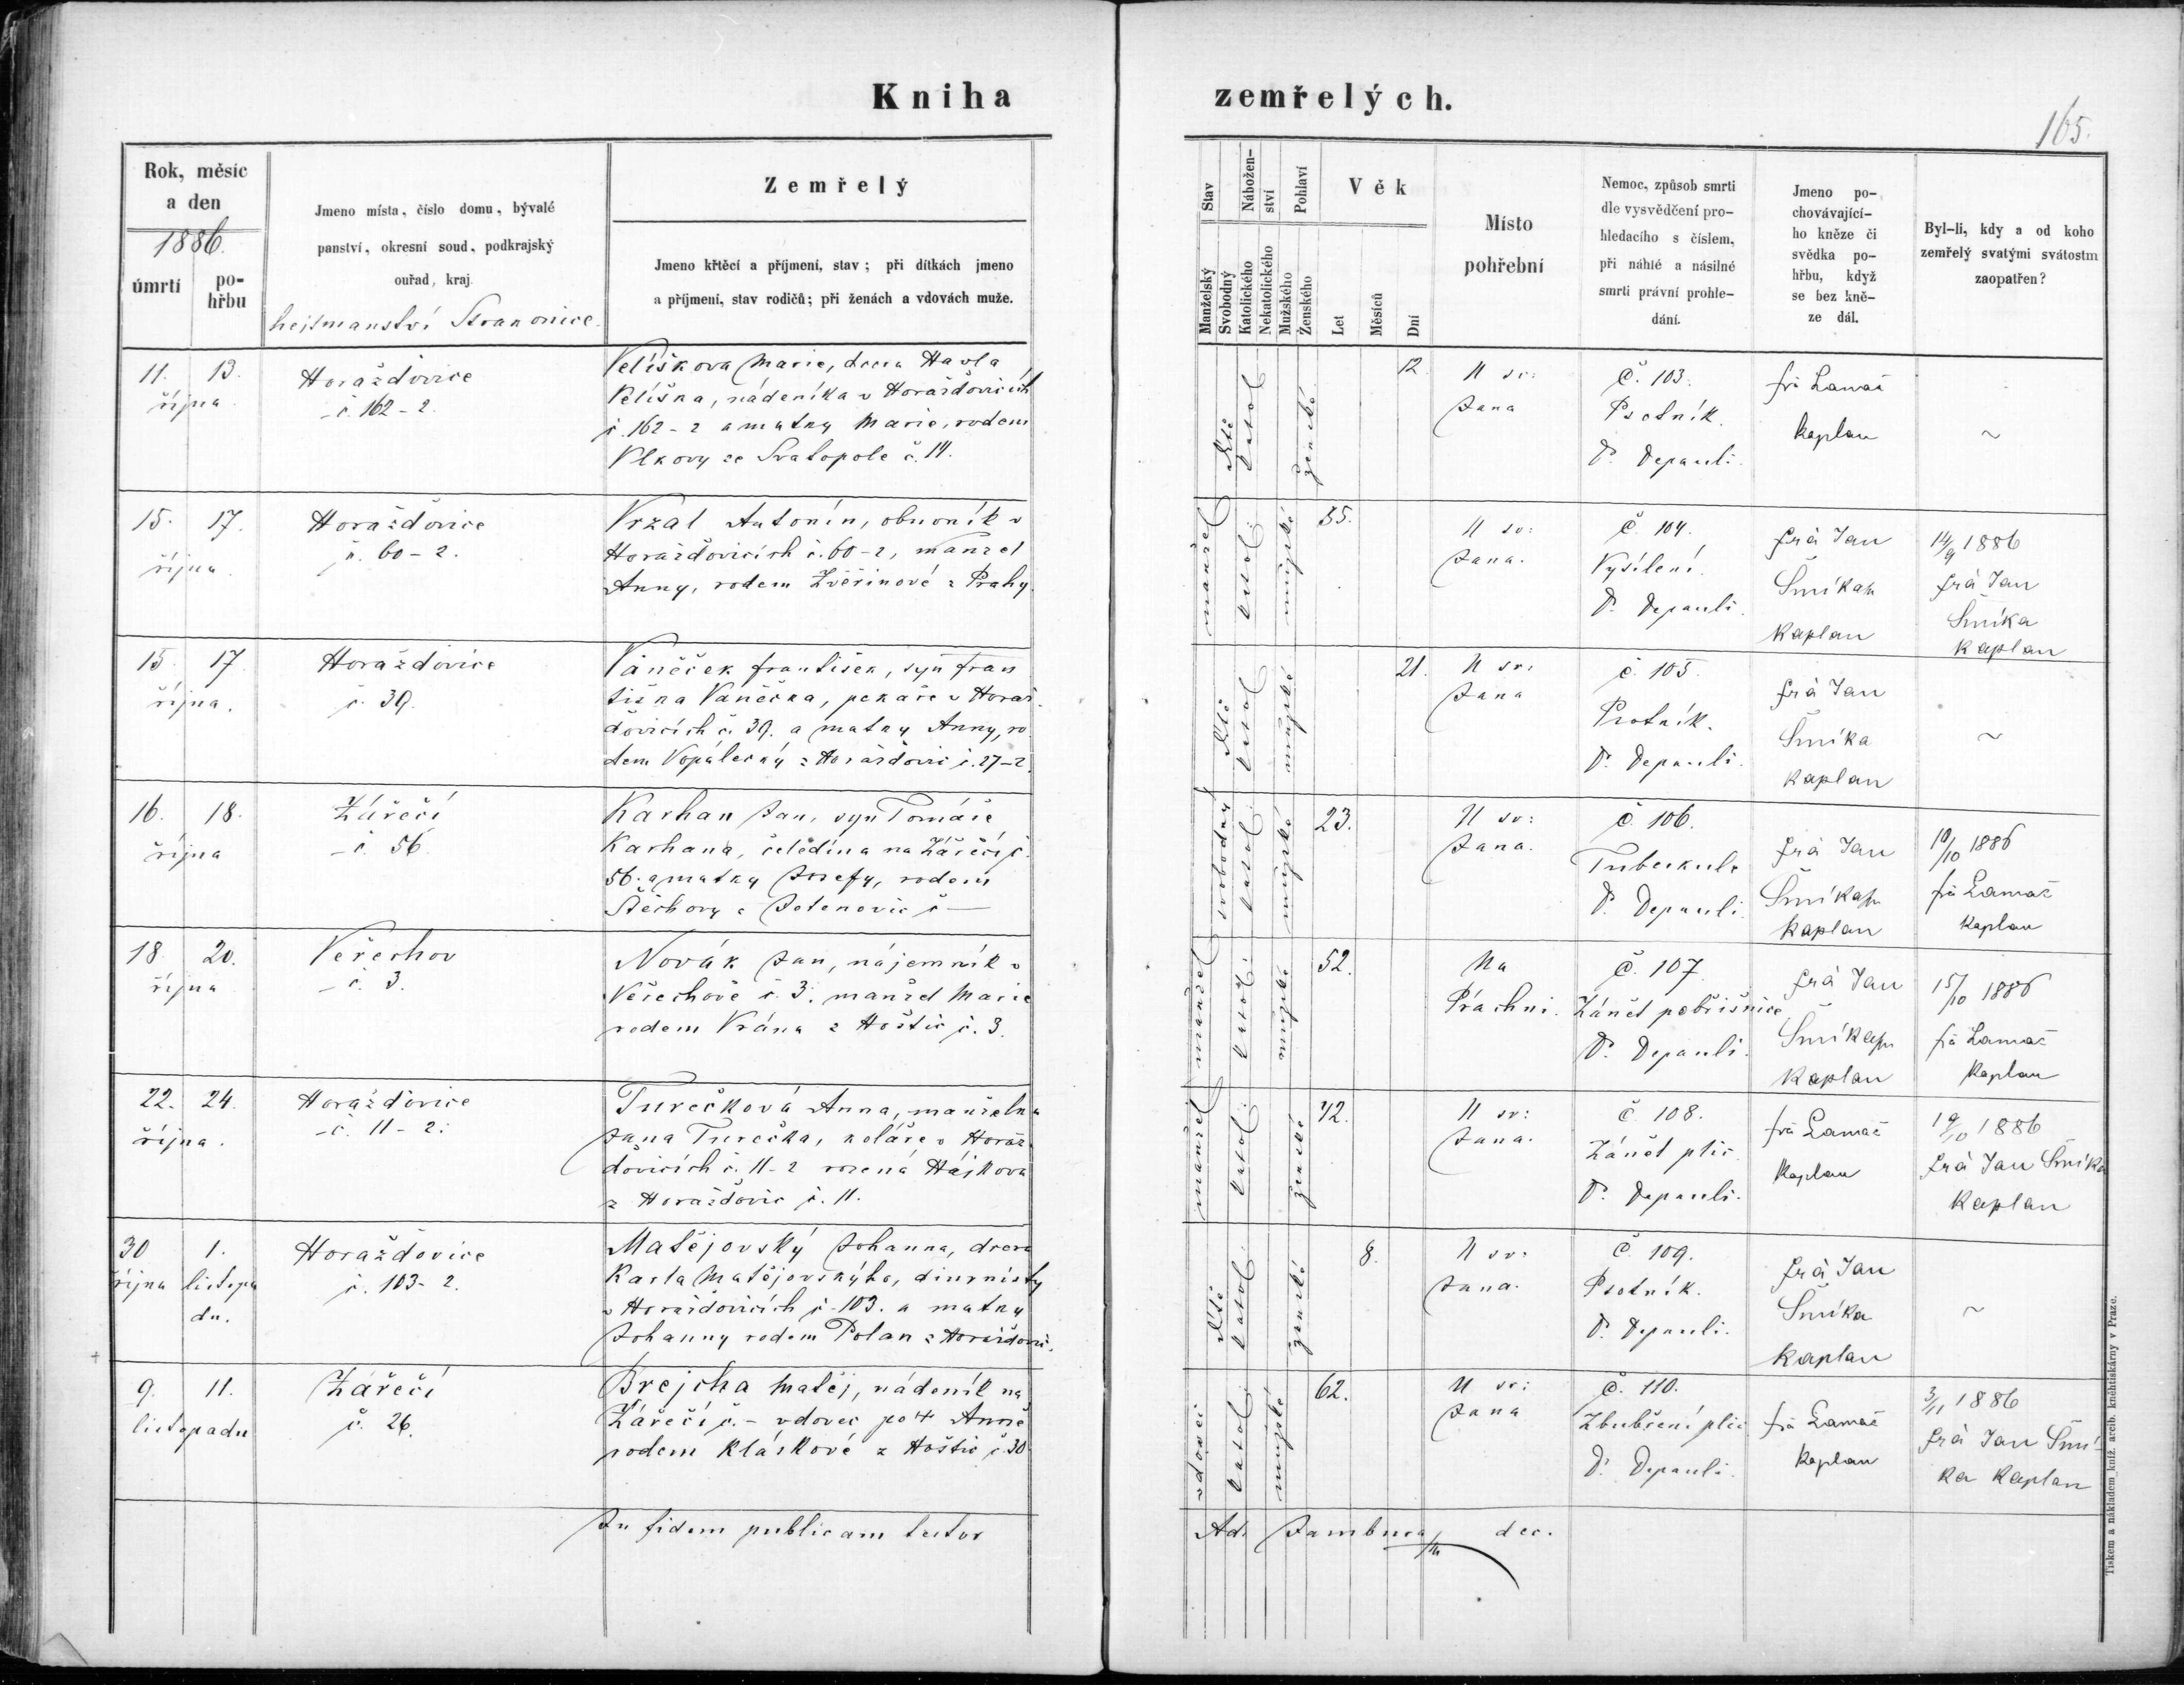 Kniha zemřelých.
165.
Rok, měsíc
a den
1886.
úmrtí
po-
hřbu
Jmeno místa, číslo domu, bývalé
panství, okresní soud, podkrajský
ouřad, kraj.
hejtmanství Strakonice.
Zemřelý
Jmeno křtěcí a příjmení, stav; při dítkách jmeno
a příjmení, stav rodičů; při ženách a vdovách muže.
Stav
Manželský
Svobodný
Nábožen-
ství
Katolického
Nekatolického
Pohlaví
Mužského
Ženského
Věk
Let
Měsíců
Dní
Místo
pohřební
Nemoc, způsob smrti
dle vysvědčení pro-
hledacího s číslem,
při náhlé a násilné
smrti právní prohle-
dání.
Jmeno po-
chovávající-
ho kněze či
svědka po-
hřbu, když
se bez kně-
ze dál.
Byl-li, kdy a od koho
zemřelý svatými svátostm
zaopatřen?
11. 13.
října
Horažďovice
č. 162-2
Velíškova Marie, dcera Havla
Velíška, nádeníka v Horažďovicích
č. 162-2 a matky Marie, rodem
Vlkovy ze Svatopole č. 14.
dítě
katol
ženské
12.
U sv:
Jana
Č. 103.
Psotník.
D. Depauli.
frà Lamač
kaplan
~
15. 17.
října
Horažďovice
č. 60-2.
Vrzal Antonín, obuvník v
Horažďovicích č. 60-2, manžel
Anny, rodem Zvěřinové z Prahy.
manžel
katol:
mužské
55.
U sv:
Jana.
Č 104.
Vysílení.
D. Depauli.
frà Jan
Šmíka
Kaplan
14/9 1886
frà Jan
Šmíka
kaplan
15. 17
října.
Horaždovice
č. 39.
Váněček František, syn Fran
tiška Váněčka, pekaře v Horaž.
ďovicích č. 39. a matky Anny, ro
dem Vopálecký z Horažďovic č. 27-2.
dítě
katol
mužské
21.
U sv:
Jana
č. 105.
Psotník.
D. Depauli.
frà Jan
Šmíka
kaplan
~
16. 18.
října
Zářečí
č 56.
Karhan Jan, syn Tomáše
Karhana, čeledína na Zářečí č.
56. a matky Josefy, rodem
č —
svobodný
katol
mužské
23.
U sv:
Jana.
Č. 106.
Tuberkule
D. Depauli.
frà Jan
Šmíka
kaplan
10/10 1886
frà Lamač
kaplan
18 20.
října
Veřechov
č. 3.
Novák Jan, nájemník v
Veřechově č. 3. manžel Marie
rodem Vrána z Hoštic č. 3.
manžel
katol:
mužské
52.
Na
Práchni.
Č. 107.
Zánět pobřišnice
D. Depauli.
frà Jan
Šmíka
Kaplan
15/10 1886
frà Lamač
Kaplan
22. 24.
října.
Horažďovice
č. 11-2.
Turečková Anna, manželka
Jana Turečka, koláře v Horaž.
ďovicích č. 11-2 rozená Hájkova
z Horažďovic č. 11.
manžel
katol:
ženské
42.
U sv:
Jana.
č. 108.
Zánět plic
D. Depauli.
frà Lamač
Kaplan
19/10 1886
frà Jan Šmíka
Kaplan
30 1.
října listopa
du.
Horaždovice
č. 103-2.
Matějovský Johanna, dcera
Karla Matějovskýho, diurnisty
v Horažďovicích č. 103. a matky
Johanny rodem Polan z Horažďovic.
dítě
katol:
ženské
8.
U sv:
Jana.
Č. 109.
Psotník.
D. Depauli.
frà Jan
Šmíka
Kaplan
~
9. 11.
listopadu
Zářečí
č. 26.
Brejcha Matěj, nádeník na
Zářečí č. – vdovec po † Anně
rodem Kláskové z Hoštic č. 30
vdovec
katol:
mužské
62.
U sv:
Jana
Č. 110.
Zbubření plic
D. Depauli.
frà Lamač
kaplan
3/11 1886
frà Jan Šmí-
ka kaplan
In fidem publicam testor
Ad. Jambura dec.
Tiskem a nákladem kníž. arcib. knihtiskárny v Praze.